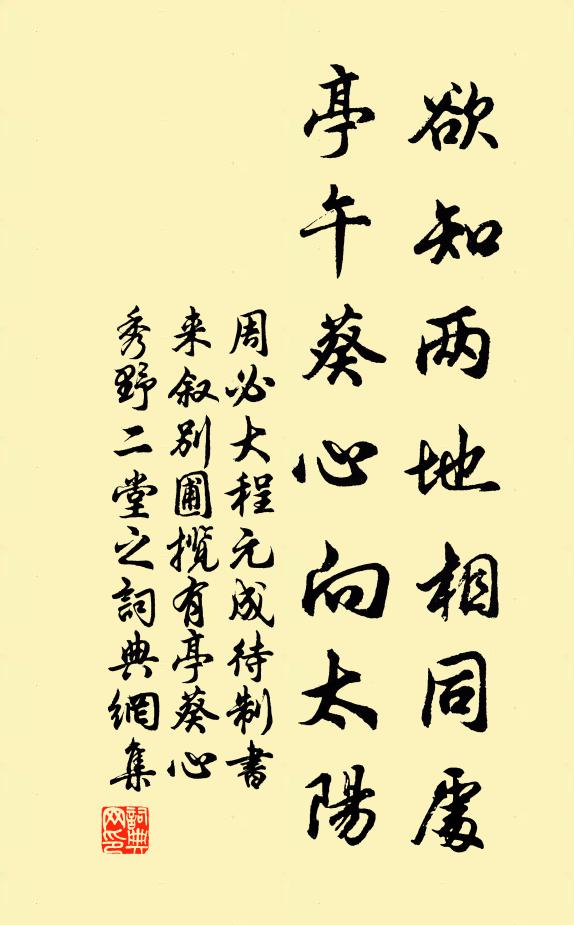 欲知两地相同處
亭午葵心向太陽
周必大程元成待制書
来叙别圃揽有亭葵心
秀野二堂之詞典網集
詞典網印